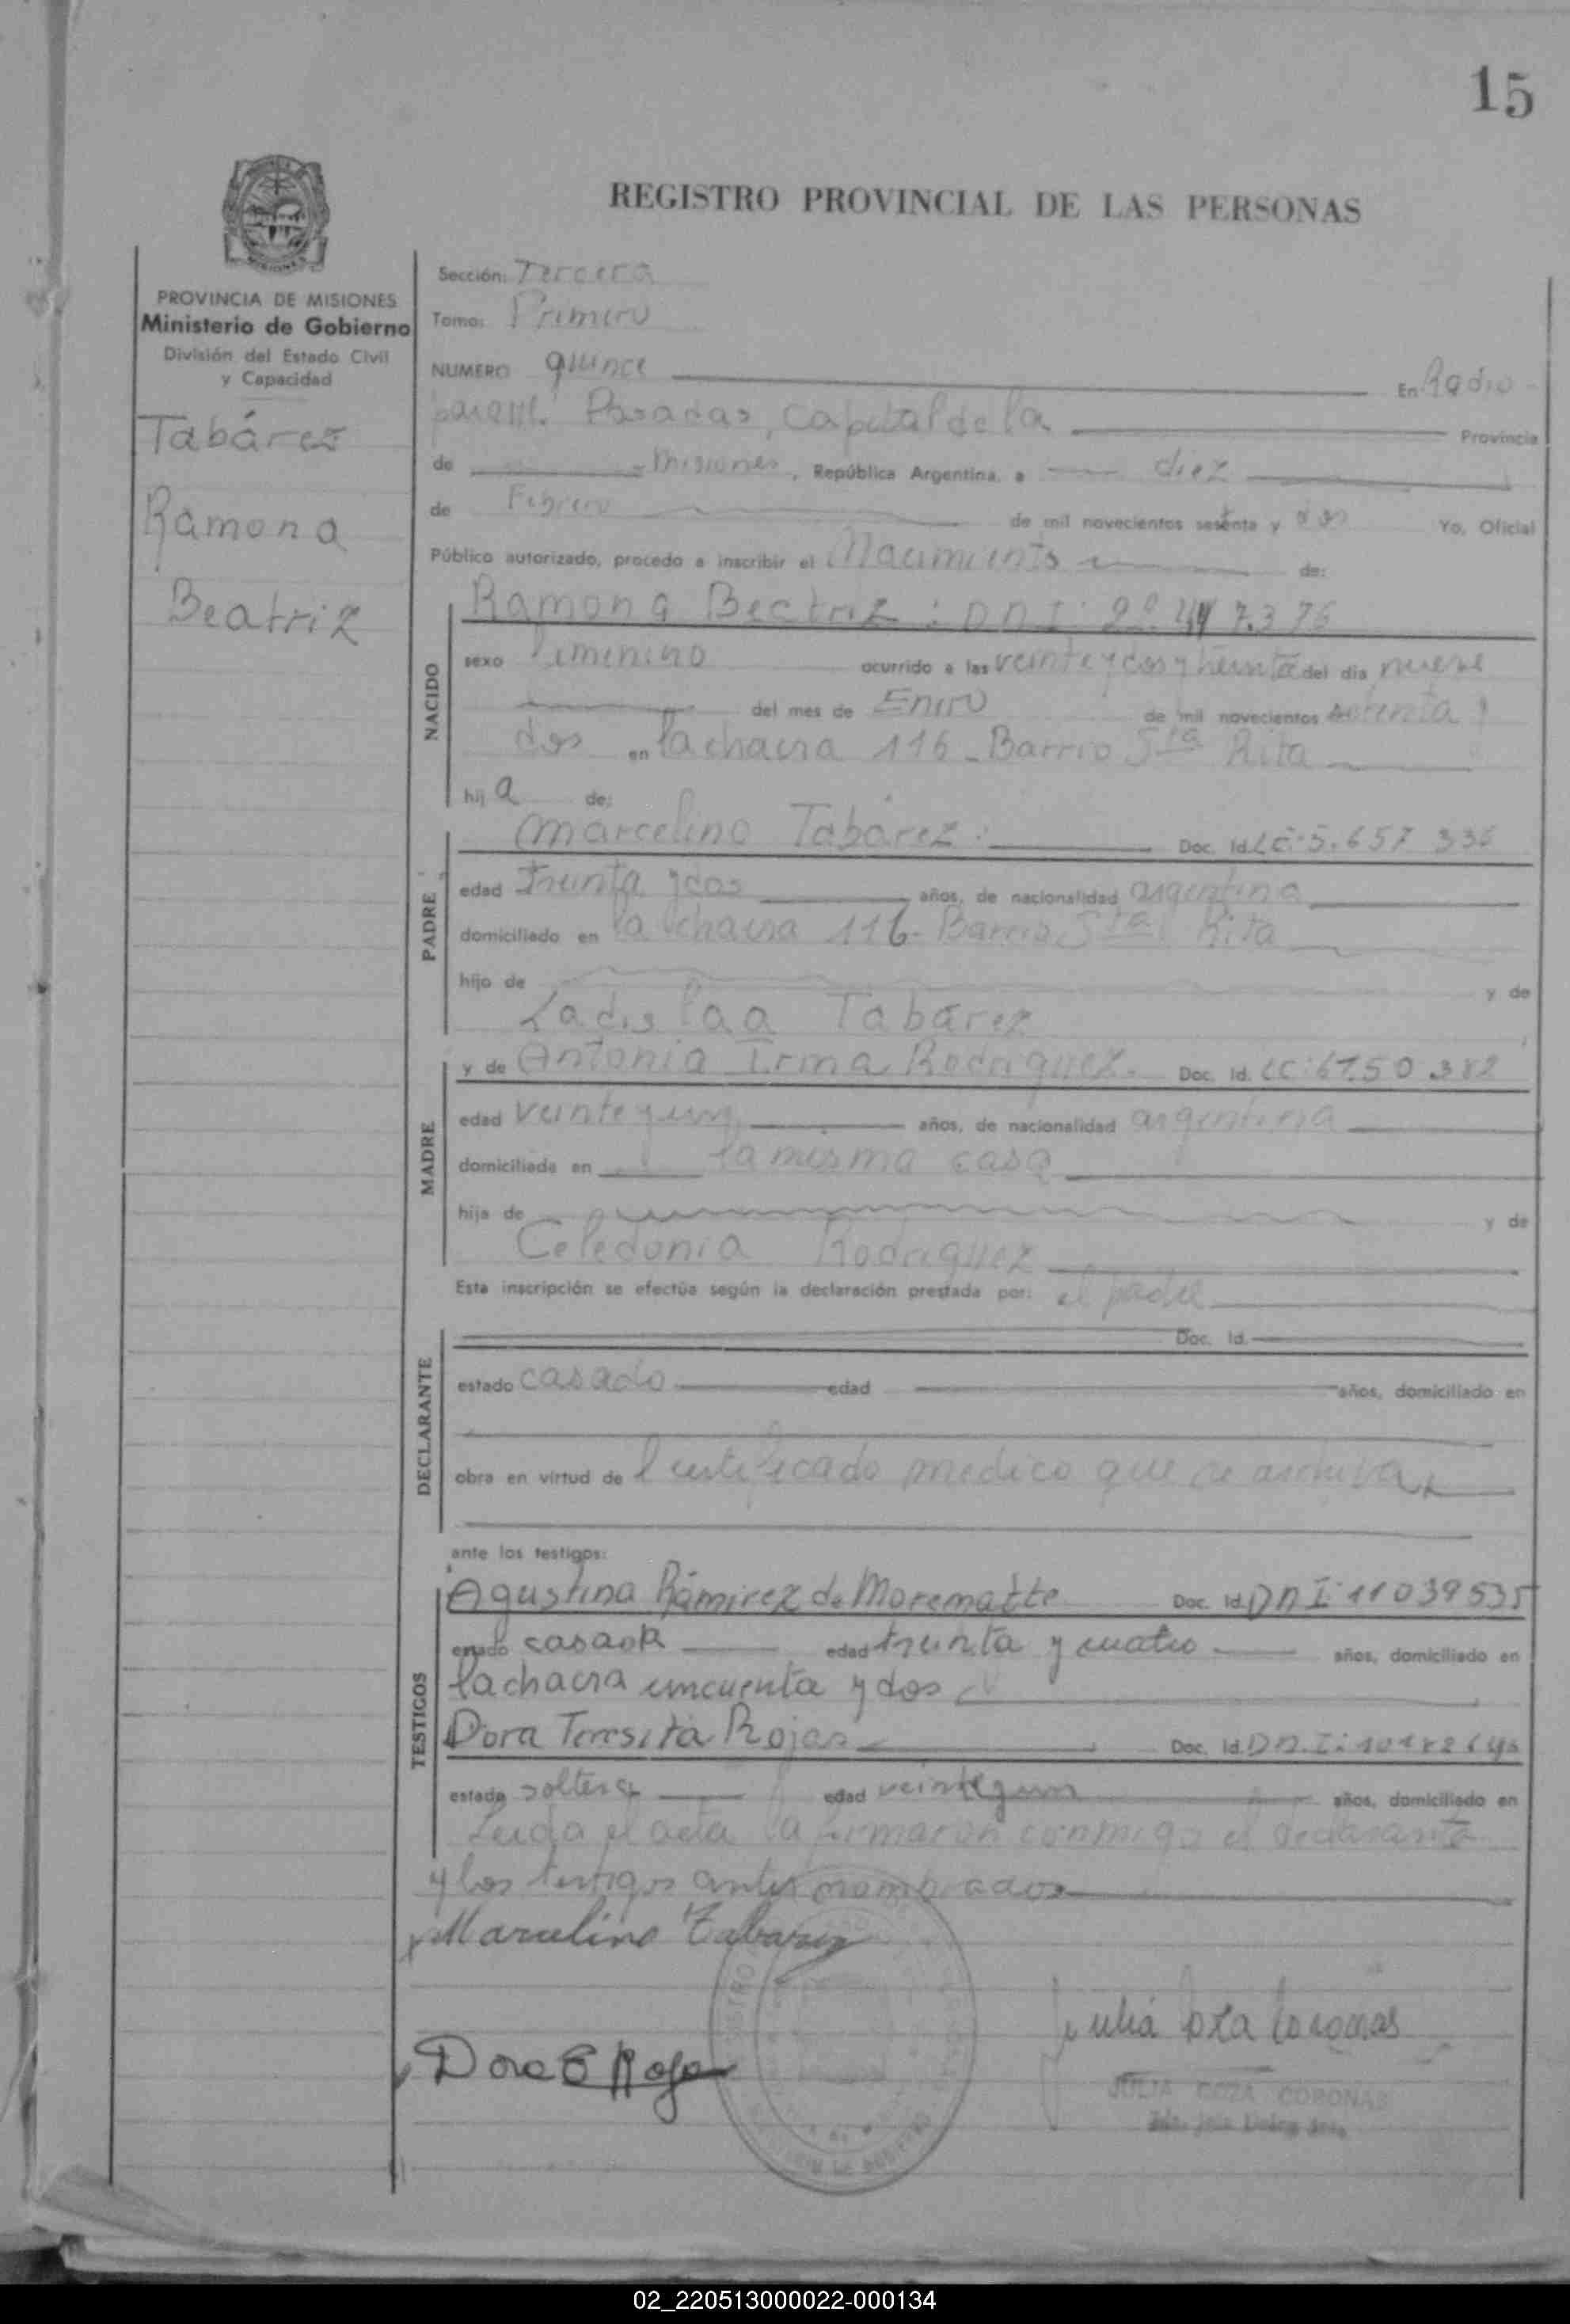 15
REGISTRO PROVINCIAL DE LAS PERSONAS
PROVINCIA DE MISIONES
Ministerio de Gobierno
División del Estado Civil
y Capacidad
Tabárez
Ramona
Beatriz
Sección: Tercera
Tomo: Primero
NUMERO quince En Radio
Posadas, Capital de la Provincia
de Misiones, República Argentina, a diez
de Febrero de mil novecientos sesenta y dos Yo, Oficial
Público autorizado, procedo a inscribir el Nacimiento de:
NACIDO
Ramona Beatriz: DNI:
sexo femenino ocurrido a las veinte y dos y treinta del dia nueve
del mes de Enero de mil novecientos setenta y
dos en la chacra 116 - Barrio Sta Rita
hij a de:
PADRE
Marcelino Tabárez. Doc. Id. LE: 5.657 336
edad treinta y dos años, de nacionalidad argentina
domiciliado en la chacra 116 - Barrio Sta Rita
hijo de y de
Ladislaa Tabárez
MADRE
y de Antonia Irma Rodriguez. Doc. Id. LC: 6750 382
edad veinte y un años, de nacionalidad argentina
domiciliada en la misma casa
hija de y de
Celedonia Rodriguez
Esta inscripción se efectúa según la declaración prestada por: el padre
DECLARANTE
Doc. Id.
estado casado edad años, domiciliado en
obra en virtud de certificado medico que se archiva
ante los testigos:
TESTIGOS
Agustina Rámirez de Morematte Doc. Id. DNI: 11039535
estado casada edad treinta y cuatro años, domiciliado en
la chacra cincuenta y dos
Dora Teresita Rojas Doc. Id. DNI:
estado soltera edad veinte y un años, domiciliado en
Leida el acta la firmaron conmigo el declarante
y los testigos antes nombrados
Marcelino Tabarez
Julia Coza Coronas
Dora E Rojas
JULIA COZA CORONAS
02_220513000022-000134